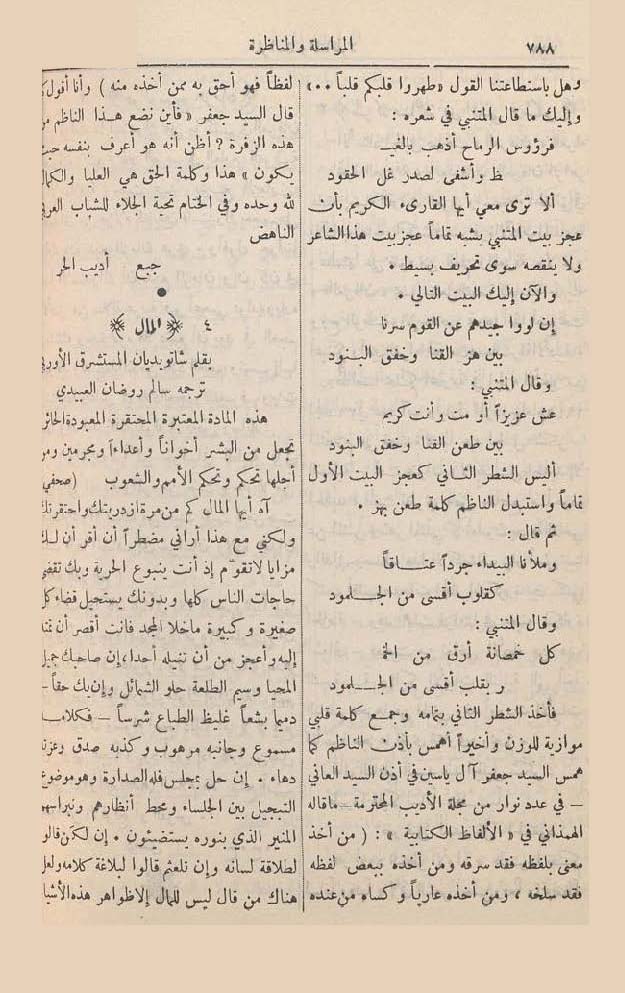 ٧٨٨
المراسلة والمناظرة
وهل باستطاعتنا القول «طهروا قلبكم قلباً ٠٠»
وإليك ما قال المتنبي في شعره :
فرؤوس الرماح أذهب بالغيـ
ـظ وأشفى لصدر غل الحقود
ألا ترى معي أيها القارىء الكريم بأن
عجز بيت المتنبي يشبه تماماً عجز بيت هذا الشاعر
ولا ينقصه سوى تحريف بسيط ٠
والآن إليك البيت التالي ٠
إن لووا جيدهم عن القوم سرنا
بين هز القنا وخفق البنود
وقال المتنبي :
عش عزيزاً أو مت وأنت كريم
بين طعن القنا وخفق البنود
أليس الشطر الثاني كعجز البيت الأول
تماماً واستبدل الناظم كلمة طعن بهز ٠
ثم قال :
وملأنا البيداء جرداً عتـــاقاً
كقلوب أقسى من الجـــلمود
وقال المتنبي :
كل خمصانة أرق من الخمـ
ـر بقلب أقسى من الجـــلمود
فأخذ الشطر الثاني بتمامه وجمع كلمة قلبي
موازية للوزن وأخيراً أهمس بأذن الناظم كما
همس السيد جعفر آل ياسين في أذن السيد العاني
– في عدد نوار من مجلة الأديب المحترمة – ماقاله
الهمذاني في «الألفاظ الكتابية» : ( من أخذ
معنى بلفظه فقد سرقه ومن أخذه ببعض لفظه
فقد سلخه ، ومن أخذه عارياً وكساه من عنده
لفظاً فهو أحق به ممن أخذه منه ) وأنا أقول
قال السيد جعفر «فأين نضع هذا الناظم من
هذه الزفرة ? أظن أنه هو أعرف بنفسه حيث
يكون» هذا وكلمة الحق هي العليا والكمال
لله وحده وفي الختام تحية الجلاء للشباب العربي
الناهض
جبع أديب الحر
●
٤ ﴿ المال ﴾
بقلم شاتوبديان المستشرق الأوربي
ترجمه سالم روضان العبيدي
هذه المادة المعتبرة المحتقرة المعبودة الحائر
تجعل من البشر أخواناً وأعداءاً ومجرمين ومن
أجلها تحكم وتحكم الأمم والشعوب (صحفي
آه أيها المال كم من مرة ازدريتك واحتقرتك
ولكني مع هذا أراني مضطراً أن أقر أن لك
مزايا لاتقوّم إذ أنت ينبوع الحرية وبك تقضى
حاجات الناس كلها وبدونك يستحيل قضاء كل
صغيرة وكبيرة ماخلا المجد فانت أقصر أن تمتد
إليه وأعجز من أن تنيله أحدا، إن صاحبك جميل
المحيا وسيم الطلعة حلو الشمائل وإن يك حقاً –
دميماً بشعاً غليظ الطباع شرساً – فكلامه
مسموع وجانبه مرهوب وكذبه صدق
دهاء ٠ إن حل بمجلس فله الصدارة وهو موضوع
التبجيل بين الجلساء ومحط أنظارهم ونبراسهم
المنير الذي بنوره يستضيئون ٠ إن لكن قالوا
لطلاقة لسانه وإن تلعثم قالوا لبلاغة كلامه ولعل
هناك من قال ليس للمال إلا ظواهر هذه الأشيا